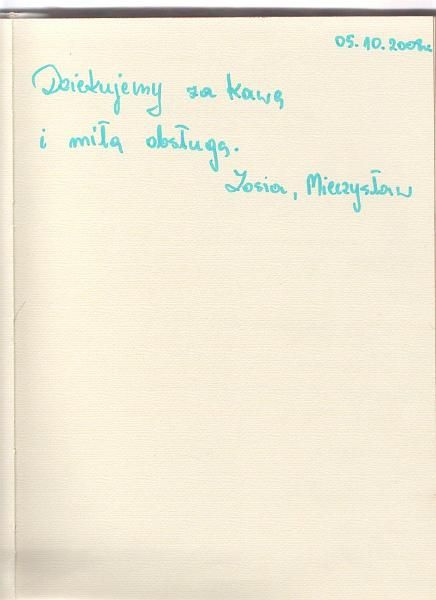 05.10.2008r.
Dziękujemy za kawę
i miłą obsługę.
Zosia, Mieczysław